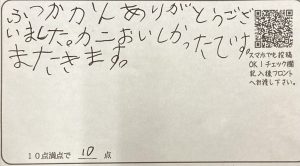 ふつかかんありがとうござ
いました。カニおいしかったです。
またきます。
スマホでも投稿
OK！チェック欄
記入後フロント
へお渡し下さい。
10点満点で 10 点